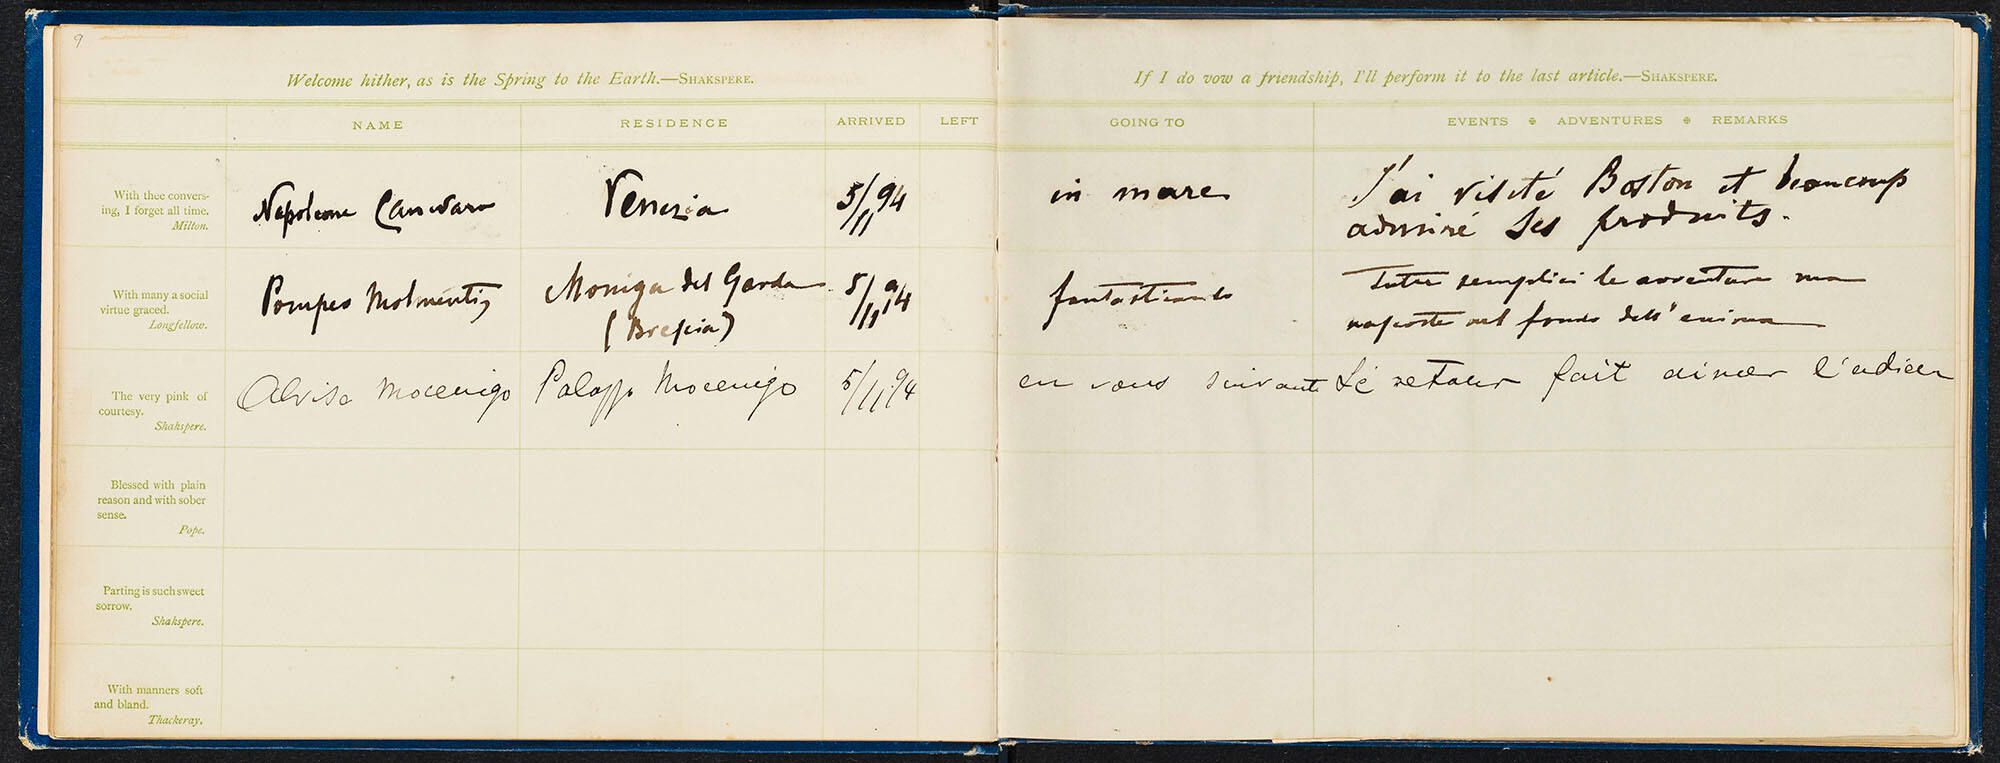 9
Welcome hither, as is the Spring to the Earth.—SHAKSPERE.
NAME RESIDENCE ARRIVED LEFT
With thee convers-
ing, I forget all time.
Milton.
Napoleone Canevaro Venezia 5/11 94
With many a social
virtue graced.
Longfellow.
Pompeo Molmenti Moniga del Garda 5/11 94
(Brescia)
The very pink of
courtesy.
Shakspere.
Alvise Mocenigo Palazzo Mocenigo 5/11.94
Blessed with plain
reason and with sober
sense.
Pope.
Parting is such sweet
sorrow.
Shakspere.
With manners soft
and bland.
Thackeray.
If I do vow a friendship, I'll perform it to the last article.—SHAKSPERE.
GOING TO EVENTS ✠ ADVENTURES ✠ REMARKS
in mare J'ai visité Boston et beaucoup
admiré ses produits.
fantasticando Tutte semplici le avventure ma
nascoste nel fondo dell'anima
en vous suivant Le retour fait aimer l'adieu